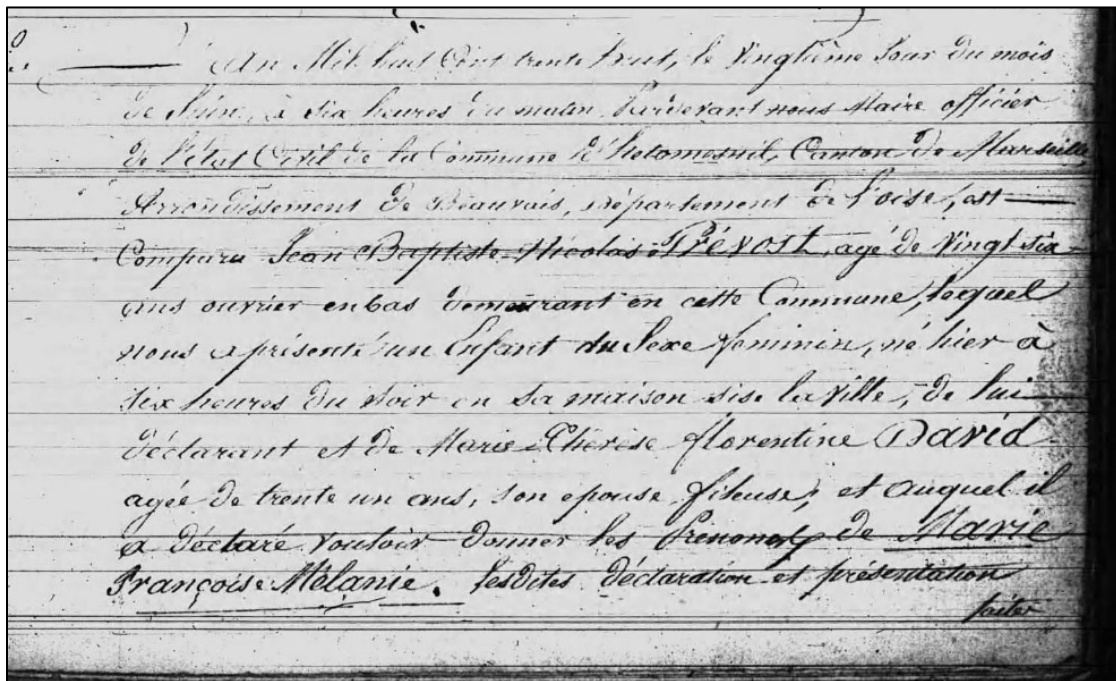 An Mil huit Cent trente huit, le Vingtième Jour du mois
de Juin, à six heures du matin Pardevant nous Maire officier
de l'état Civil de la Commune d'hetomesnil, Canton de Marseille
Arrondissement de Beauvais, département de l'oise, est
Comparu Jean Baptiste Nicolas PRÉVOST, agé de Vingt six
ans ouvrier en bas demeurant en cette Commune, lequel
nous a présenté un Enfant du Sexe feminin, né hier à
six heures du soir en sa maison sise la Ville, de lui
déclarant et de Marie Thérèse florentine David
agée de trente un ans, son epouse fileuse, et auquel il
a déclaré vouloir donner les Prénoms de Marie
Françoise Mélanie. lesdites déclaration et présentation
faites